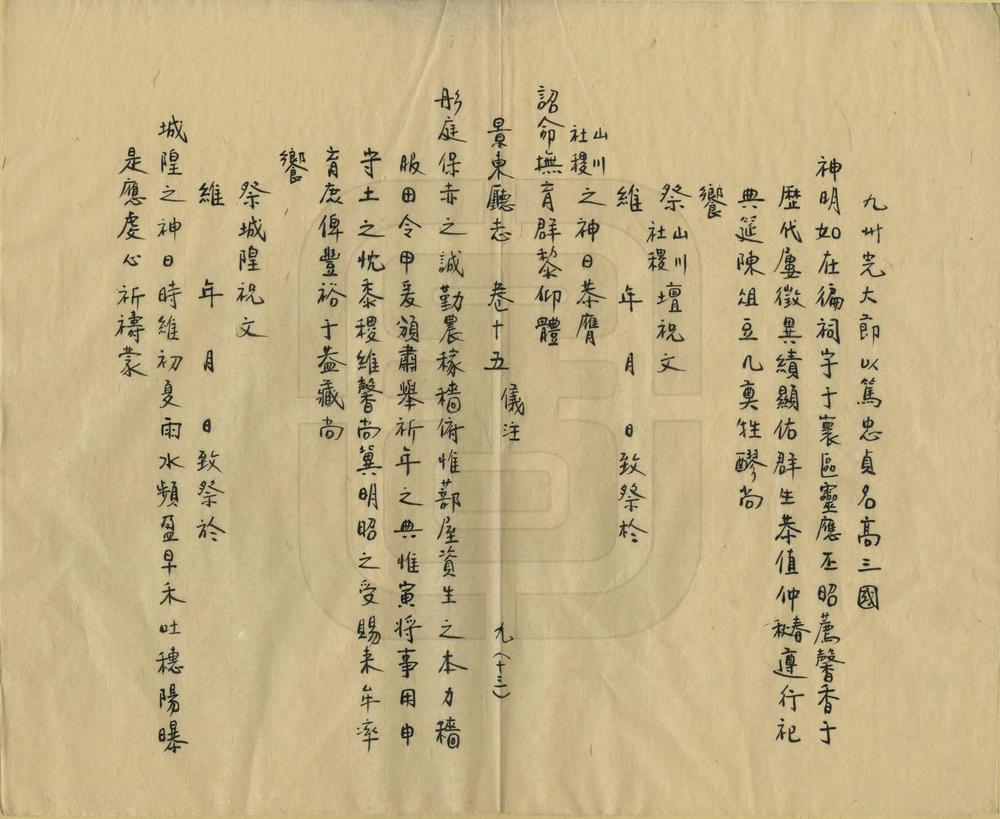 九州光大節以篤忠貞名高三國
神明如在徧祠宇于寰區靈應丕昭薦馨香于
歷代屢徵異績顯佑群生恭值仲春秋遵行祀
典筵陳俎豆几奠牲醪尚
饗
祭山川社稷壇祝文
維 年 月 日致祭於
山川社稷之神曰恭膺
詔命撫育群黎仰體
景東廳志 卷十五 儀注 九(十三)
彤庭保赤之誠勤農稼穡俯惟蔀屋資生之本力穡
服田令甲爰頒肅舉祈年之典惟寅將事用申
守土之忱黍稷維馨尚冀明昭之受賜來牟率
育庶俾豐裕于蓋藏尚
饗
祭城隍祝文
維 年 月 日致祭於
城隍之神曰時維初夏雨水頻盈早禾吐穗陽曝
是應虔心祈禱蒙